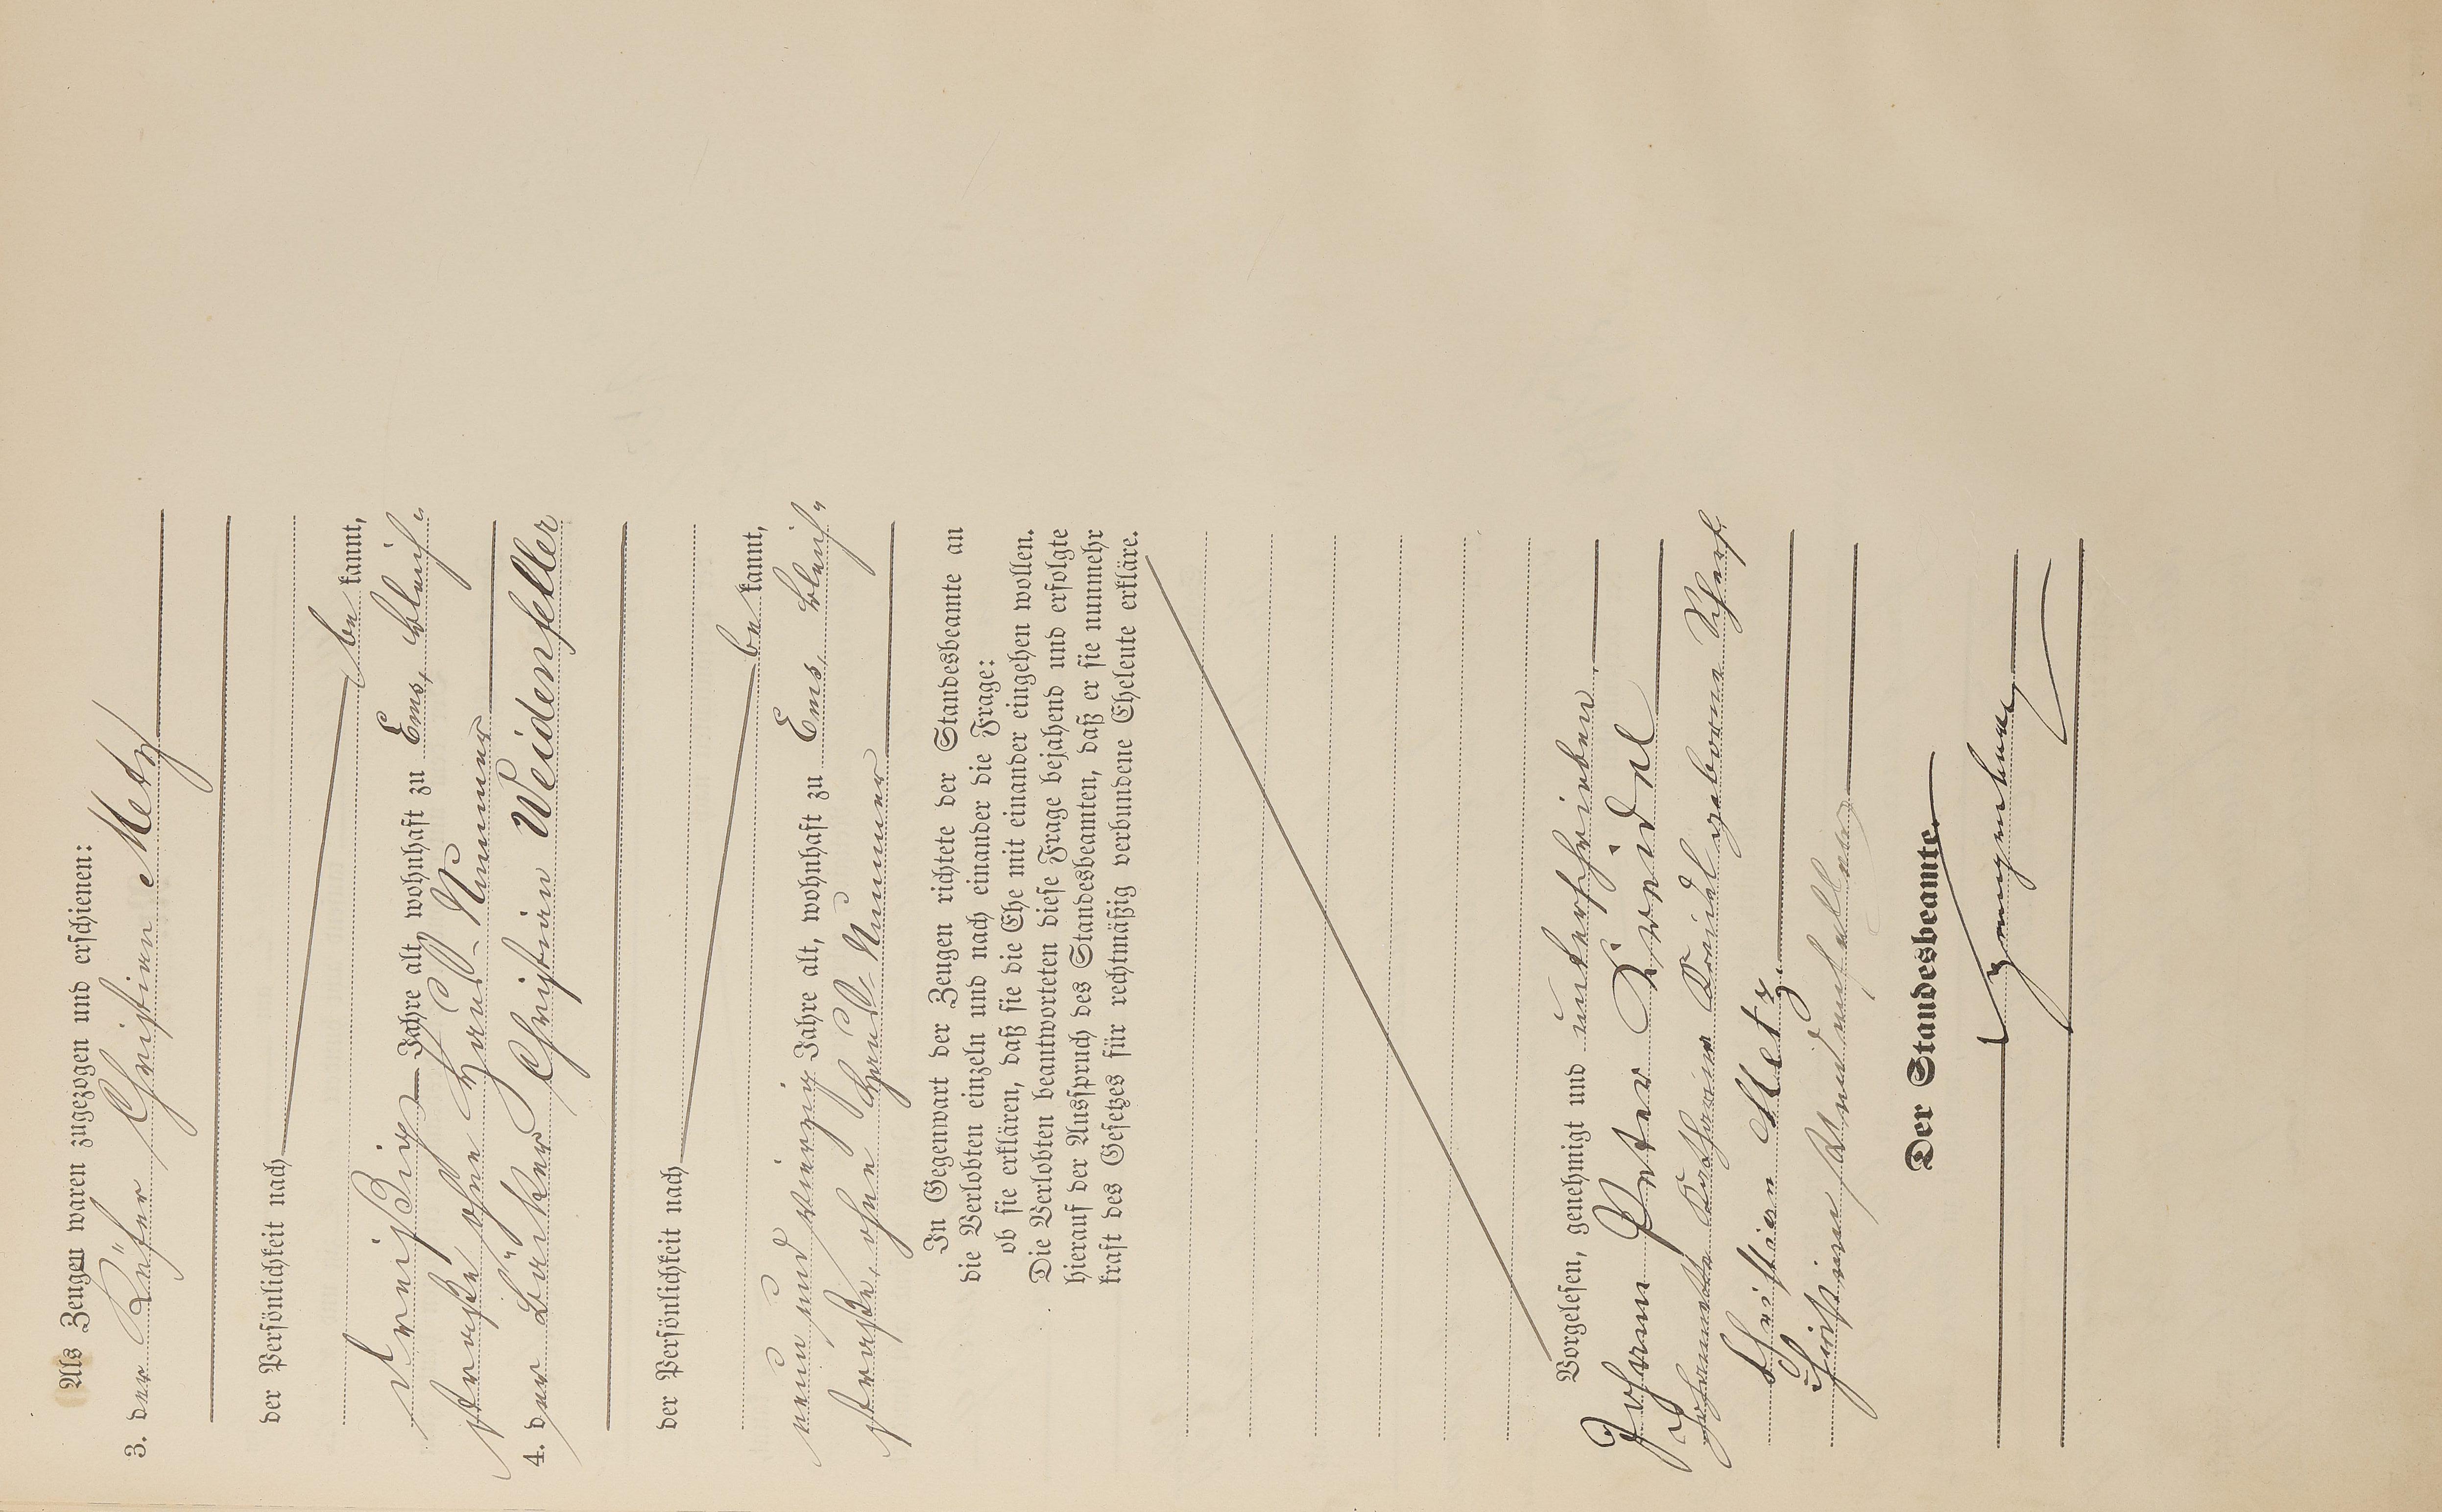 Als Zeugen waren zugezogen und erschienen:
3. der Küfer Christian Metz
der Persönlichkeit nach
be kannt,
dreißig Jahre alt, wohnhaft zu Ems, Bleich-
straße ohne Haus-Nummer
4. der Bäcker Christian Weidenfeller
der Persönlichkeit nach
be kannt,
neun und vierzig Jahre alt, wohnhaft zu Ems, Bleich-
straße, ohne Haus-Nummer
In Gegenwart der Zeugen richtete der Standesbeamte an
die Verlobten einzeln und nach einander die Frage:
ob sie erklären, daß sie die Ehe mit einander eingehen wollen.
Die Verlobten beantworteten diese Frage bejahend und erfolgte
hierauf der Ausspruch des Standesbeamten, daß er sie nunmehr
kraft des Gesetzes für rechtmäßig verbundene Eheleute erkläre.
Vorgelesen, genehmigt und unterschrieben.
Johann Peter Kreidel
Johannette Katharina Kreidel geborene Scherf
Christian Metz.
Christian Weidenfeller
Der Standesbeamte.